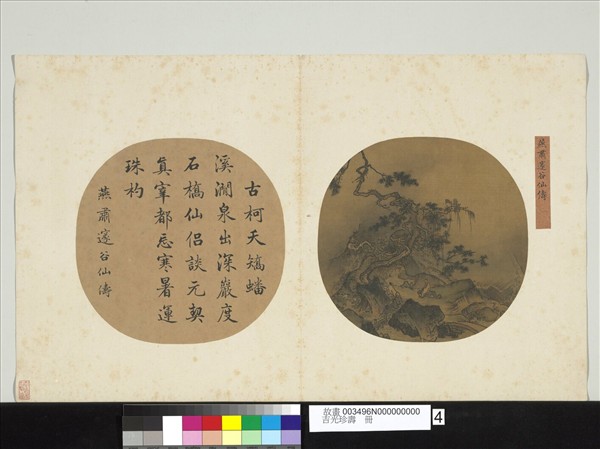 燕肅邃谷仙儔
古柯夭矯蟠
溪澗泉出深巖度
石橋仙侶談元契
真宰都忘寒暑運
珠杓
燕肅邃谷仙儔
故畫 003496N000000000
吉光珍壽 冊
4